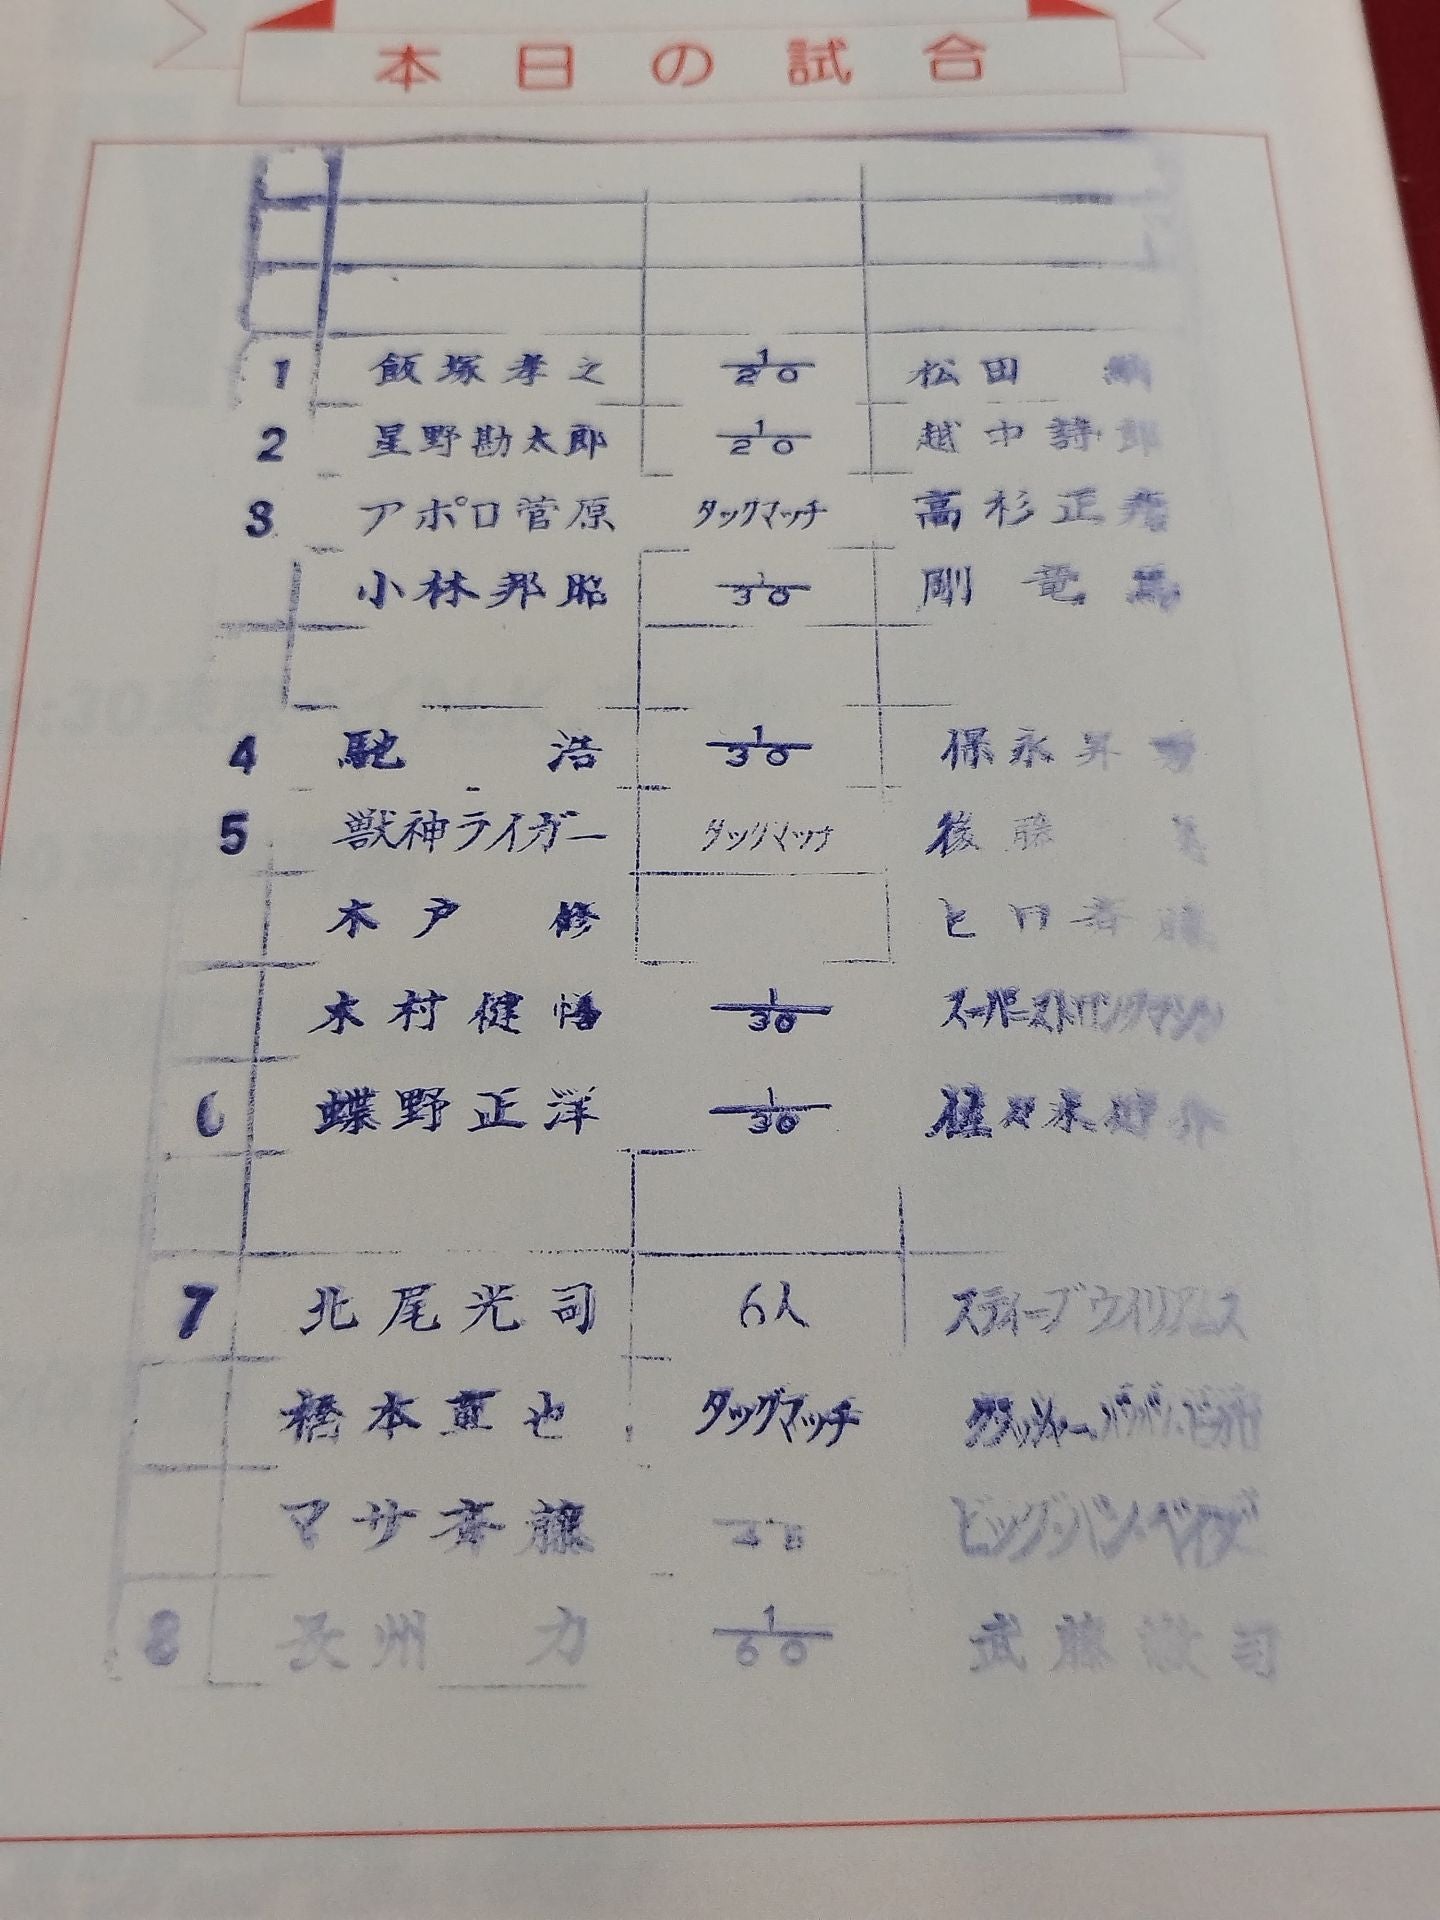 本日の試合
1 飯塚孝之 1/20 松田
2 星野勘太郎 1/20 越中詩郎
3 アポロ菅原 タックマッチ 高杉正彦
小林邦昭 1/30 剛竜馬
4 馳 浩 1/30 保永昇
5 獣神ライガー タッグマッチ 後藤
木戸 修 ヒロ斉藤
木村健悟 1/30 スーパーストロングマシン
6 蝶野正洋 1/30 佐々木健介
7 北尾光司 6人 スティーブウイリアムス
橋本真也 タッグマッチ クラッシャー・バンバン・ビガロ
マサ斉藤 ビッグ・バン・ベイダー
8 長州 力 1/60 武藤敬司